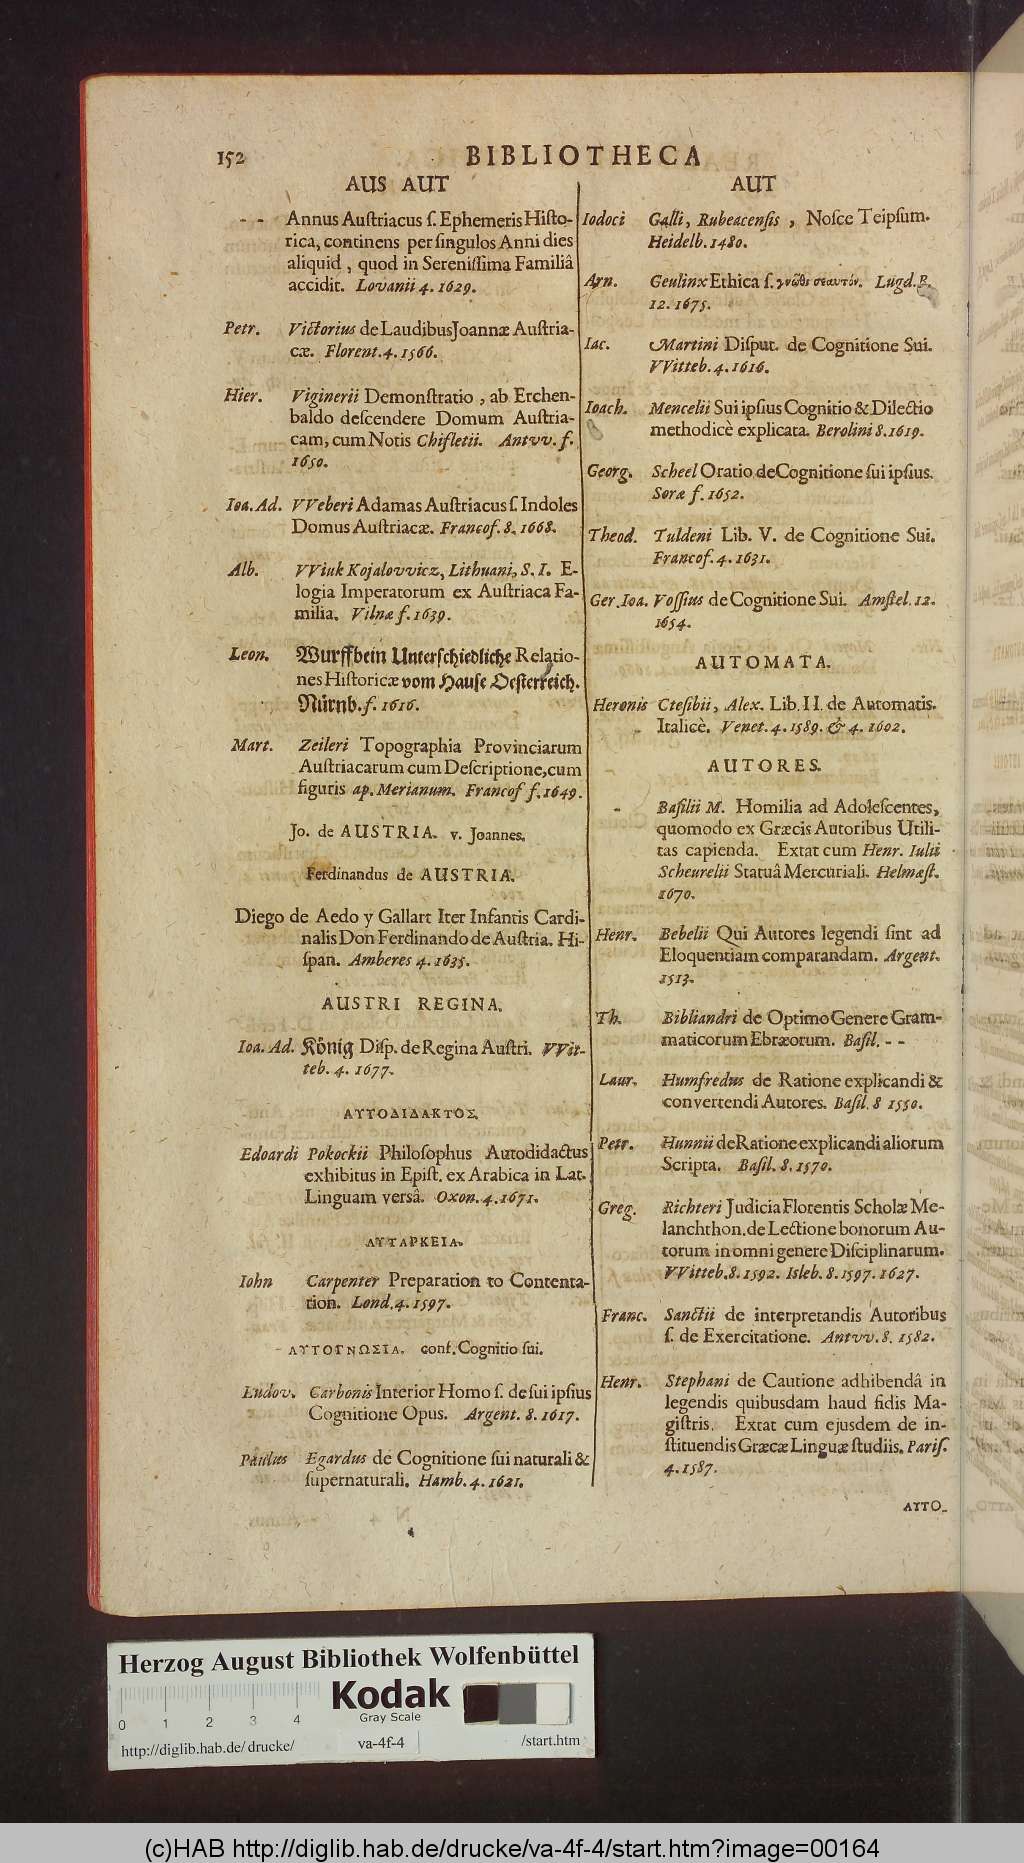 152
BIBLIOTHECA
AUS AUT
- - Annus Auſtriacus ſ. Ephemeris Hiſto-
rica, continens per ſingulos Anni dies
aliquid, quod in Sereniſſima Familiâ
accidit. Lovanii 4. 1629.
Petr. Victorius de Laudibus Joannæ Auſtria-
cæ. Florent. 4. 1566.
Hier. Viginerii Demonſtratio, ab Erchen-
baldo deſcendere Domum Auſtria-
cam, cum Notis Chifletii. Antvv. f.
1650.
Ioa. Ad. VVeberi Adamas Auſtriacus ſ. Indoles
Domus Auſtriacæ. Francof. 8. 1668.
Alb. VViuk Kojalovvicz, Lithuani, S. I. E-
logia Imperatorum ex Auſtriaca Fa-
milia. Vilnæ f. 1639.
Leon. Wurffbein Unterſchiedliche Relatio-
nes Hiſtoricæ vom Hauſe Oeſterreich.
Nürnb. f. 1616.
Mart. Zeileri Topographia Provinciarum
Auſtriacarum cum Deſcriptione, cum
figuris ap. Merianum. Francof f. 1649.
Jo. de AUSTRIA. v. Joannes.
Ferdinandus de AUSTRIA.
Diego de Aedo y Gallart Iter Infantis Cardi-
nalis Don Ferdinando de Auſtria. Hi-
ſpan. Amberes 4. 1635.
AUSTRI REGINA.
Ioa. Ad. König Diſp. de Regina Auſtri. VVit-
teb. 4. 1677.
ΑΥΤΟΔΙΔΑΚΤΟΣ.
Edoardi Pokockii Philoſophus Autodidactus
exhibitus in Epiſt. ex Arabica in Lat.
Linguam versâ. Oxon. 4. 1671.
ΑΥΤΑΡΚΕΙΑ.
Iohn Carpenter Preparation to Contenta-
tion. Lond. 4. 1597.
ΑΥΤΟΓΝΩΣΙΑ. conf. Cognitio ſui.
Ludov. Carbonis Interior Homo ſ. de ſui ipſius
Cognitione Opus. Argent. 8. 1617.
Paulus Egardus de Cognitione ſui naturali &
ſupernaturali. Hamb. 4. 1621.
AUT
Iodoci Galli, Rubeacenſis, Noſce Teipſum.
Heidelb. 1480.
Arn. Geulinx Ethica ſ. γνῶθι σεαυτόν. Lugd. B.
12. 1675.
Iac. Martini Diſput. de Cognitione Sui.
VVitteb. 4. 1616.
Ioach. Mencelii Sui ipſius Cognitio & Dilectio
methodicè explicata. Berolini 8. 1619.
Georg. Scheel Oratio de Cognitione ſui ipſius.
Soræ f. 1652.
Theod. Tuldeni Lib. V. de Cognitione Sui.
Francof. 4. 1631.
Ger. Ioa. Voſſius de Cognitione Sui. Amſtel. 12.
1654.
AUTOMATA.
Heronis Cteſibii, Alex. Lib. II. de Automatis.
Italicè. Venet. 4. 1589. & 4. 1602.
AUTORES.
- Baſilii M. Homilia ad Adoleſcentes,
quomodo ex Græcis Autoribus Utili-
tas capienda. Extat cum Henr. Iulii
Scheurelii Statuâ Mercuriali. Helmæſt.
1670.
Henr. Bebelii Qui Autores legendi ſint ad
Eloquentiam comparandam. Argent.
1513.
Th. Bibliandri de Optimo Genere Gram-
maticorum Ebræorum. Baſil. - -
Laur. Humfredus de Ratione explicandi &
convertendi Autores. Baſil. 8 1550.
Petr. Hunnii de Ratione explicandi aliorum
Scripta. Baſil. 8. 1570.
Greg. Richteri Judicia Florentis Scholæ Me-
lanchthon. de Lectione bonorum Au-
torum in omni genere Diſciplinarum.
VVitteb. 8. 1592. Isleb. 8. 1597. 1627.
Franc. Sanctii de interpretandis Autoribus
ſ. de Exercitatione. Antvv. 8. 1582.
Henr. Stephani de Cautione adhibendâ in
legendis quibusdam haud fidis Ma-
giſtris. Extat cum ejusdem de in-
ſtituendis Græcæ Linguæ ſtudiis. Pariſ.
4. 1587.
ΑΥΤΟ-
Herzog August Bibliothek Wolfenbüttel
Kodak
Gray Scale
0 1 2 3 4
http://diglib.hab.de/drucke/ va-4f-4 /start.htm
(c)HAB http://diglib.hab.de/drucke/va-4f-4/start.htm?image=00164